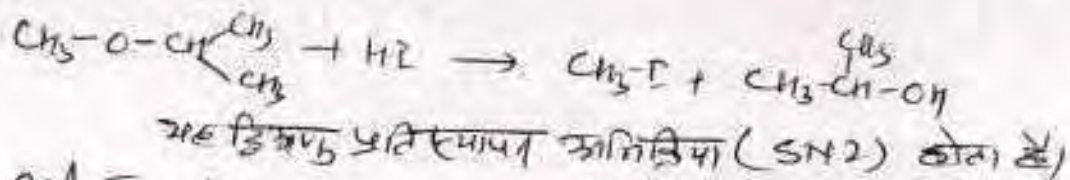 CH3-O-CH CH3 CH3 + HI → CH3-I + CH3-CH-OH CH3
यह द्विअणु प्रतिस्थापन अभिक्रिया (SN2) होता है।